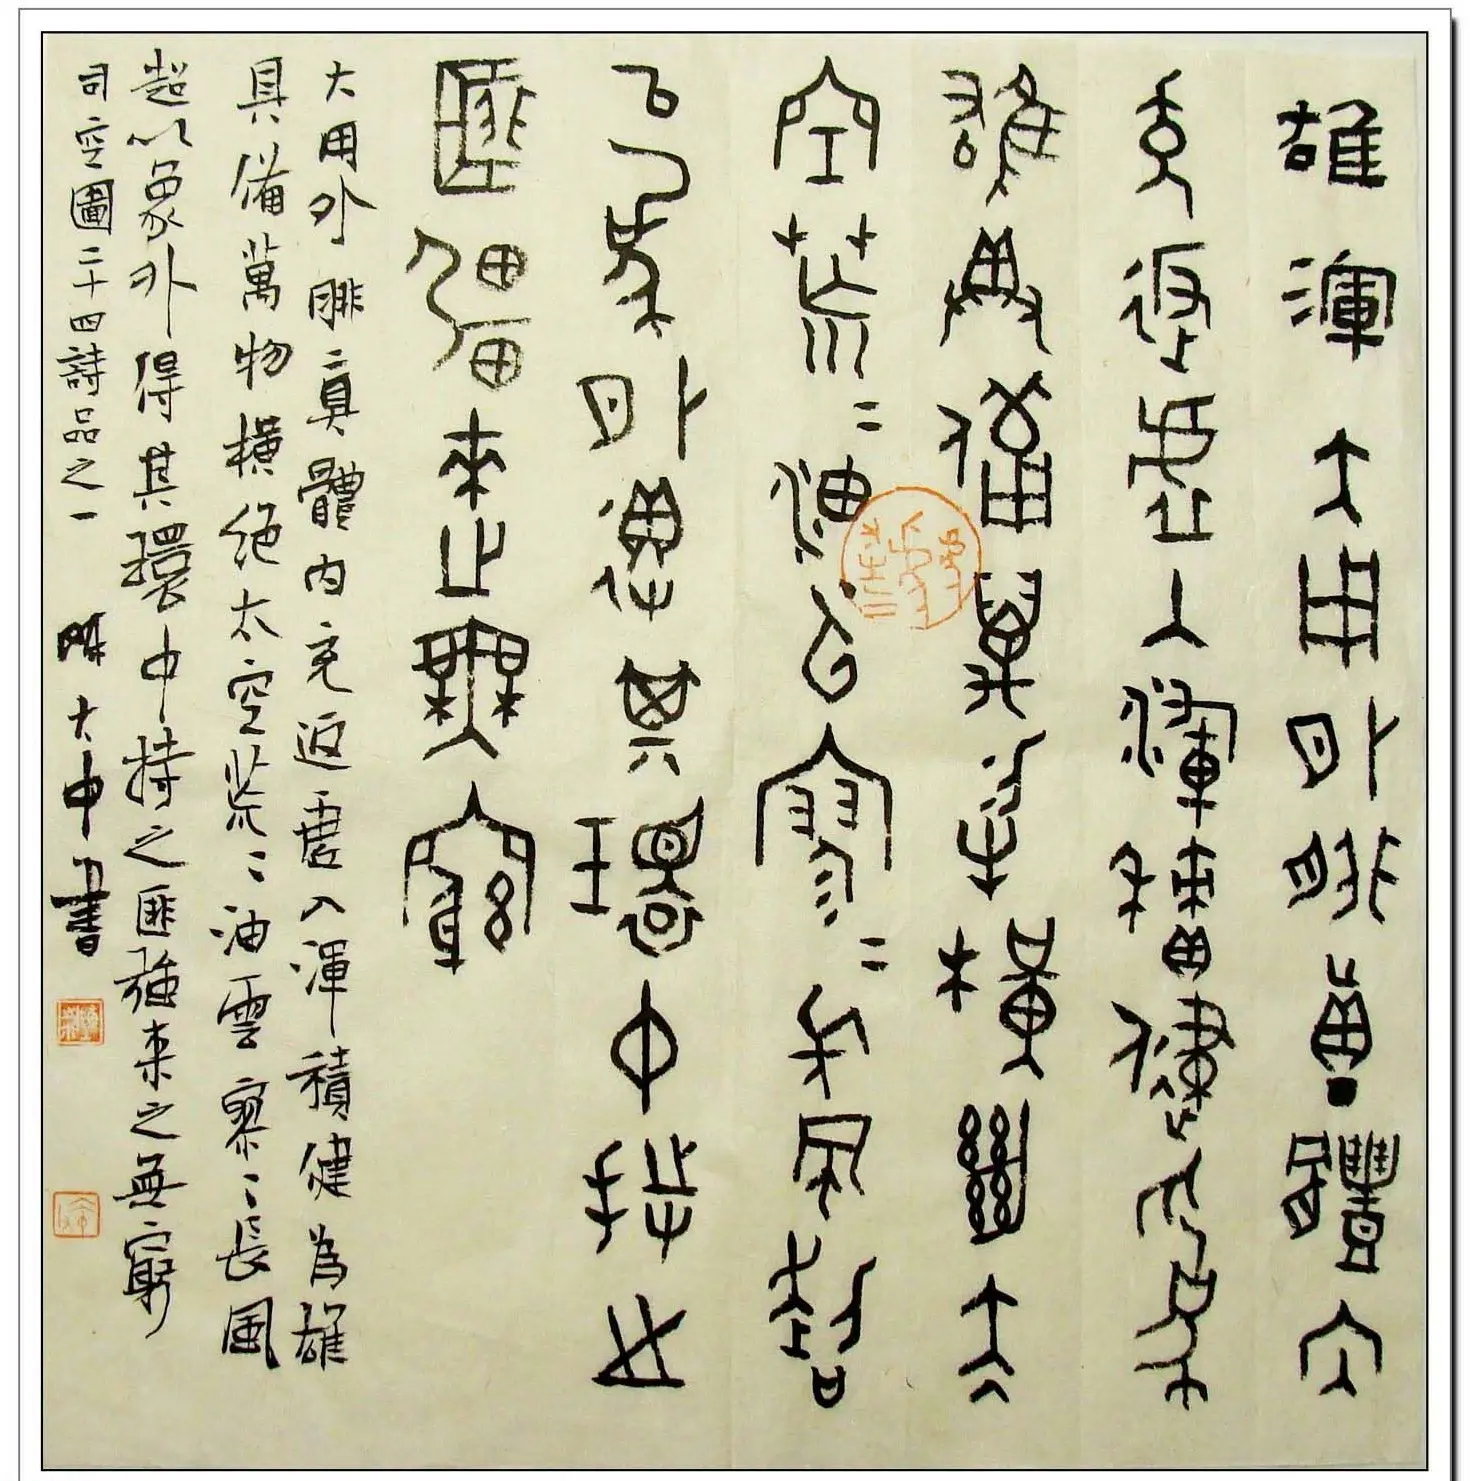 雄渾大用外腓真體內
充返虛入渾積健為
雄具備萬物橫絕太
空荒〻油雲寥〻長風超
以象外得其環中持之
匪強來之無窮
大用外腓真體內充返虛入渾積健為雄
具備萬物橫絕太空荒〻油雲寥〻長風
超以象外得其環中持之匪強來之無窮
司空圖二十四詩品之一 陳大中書